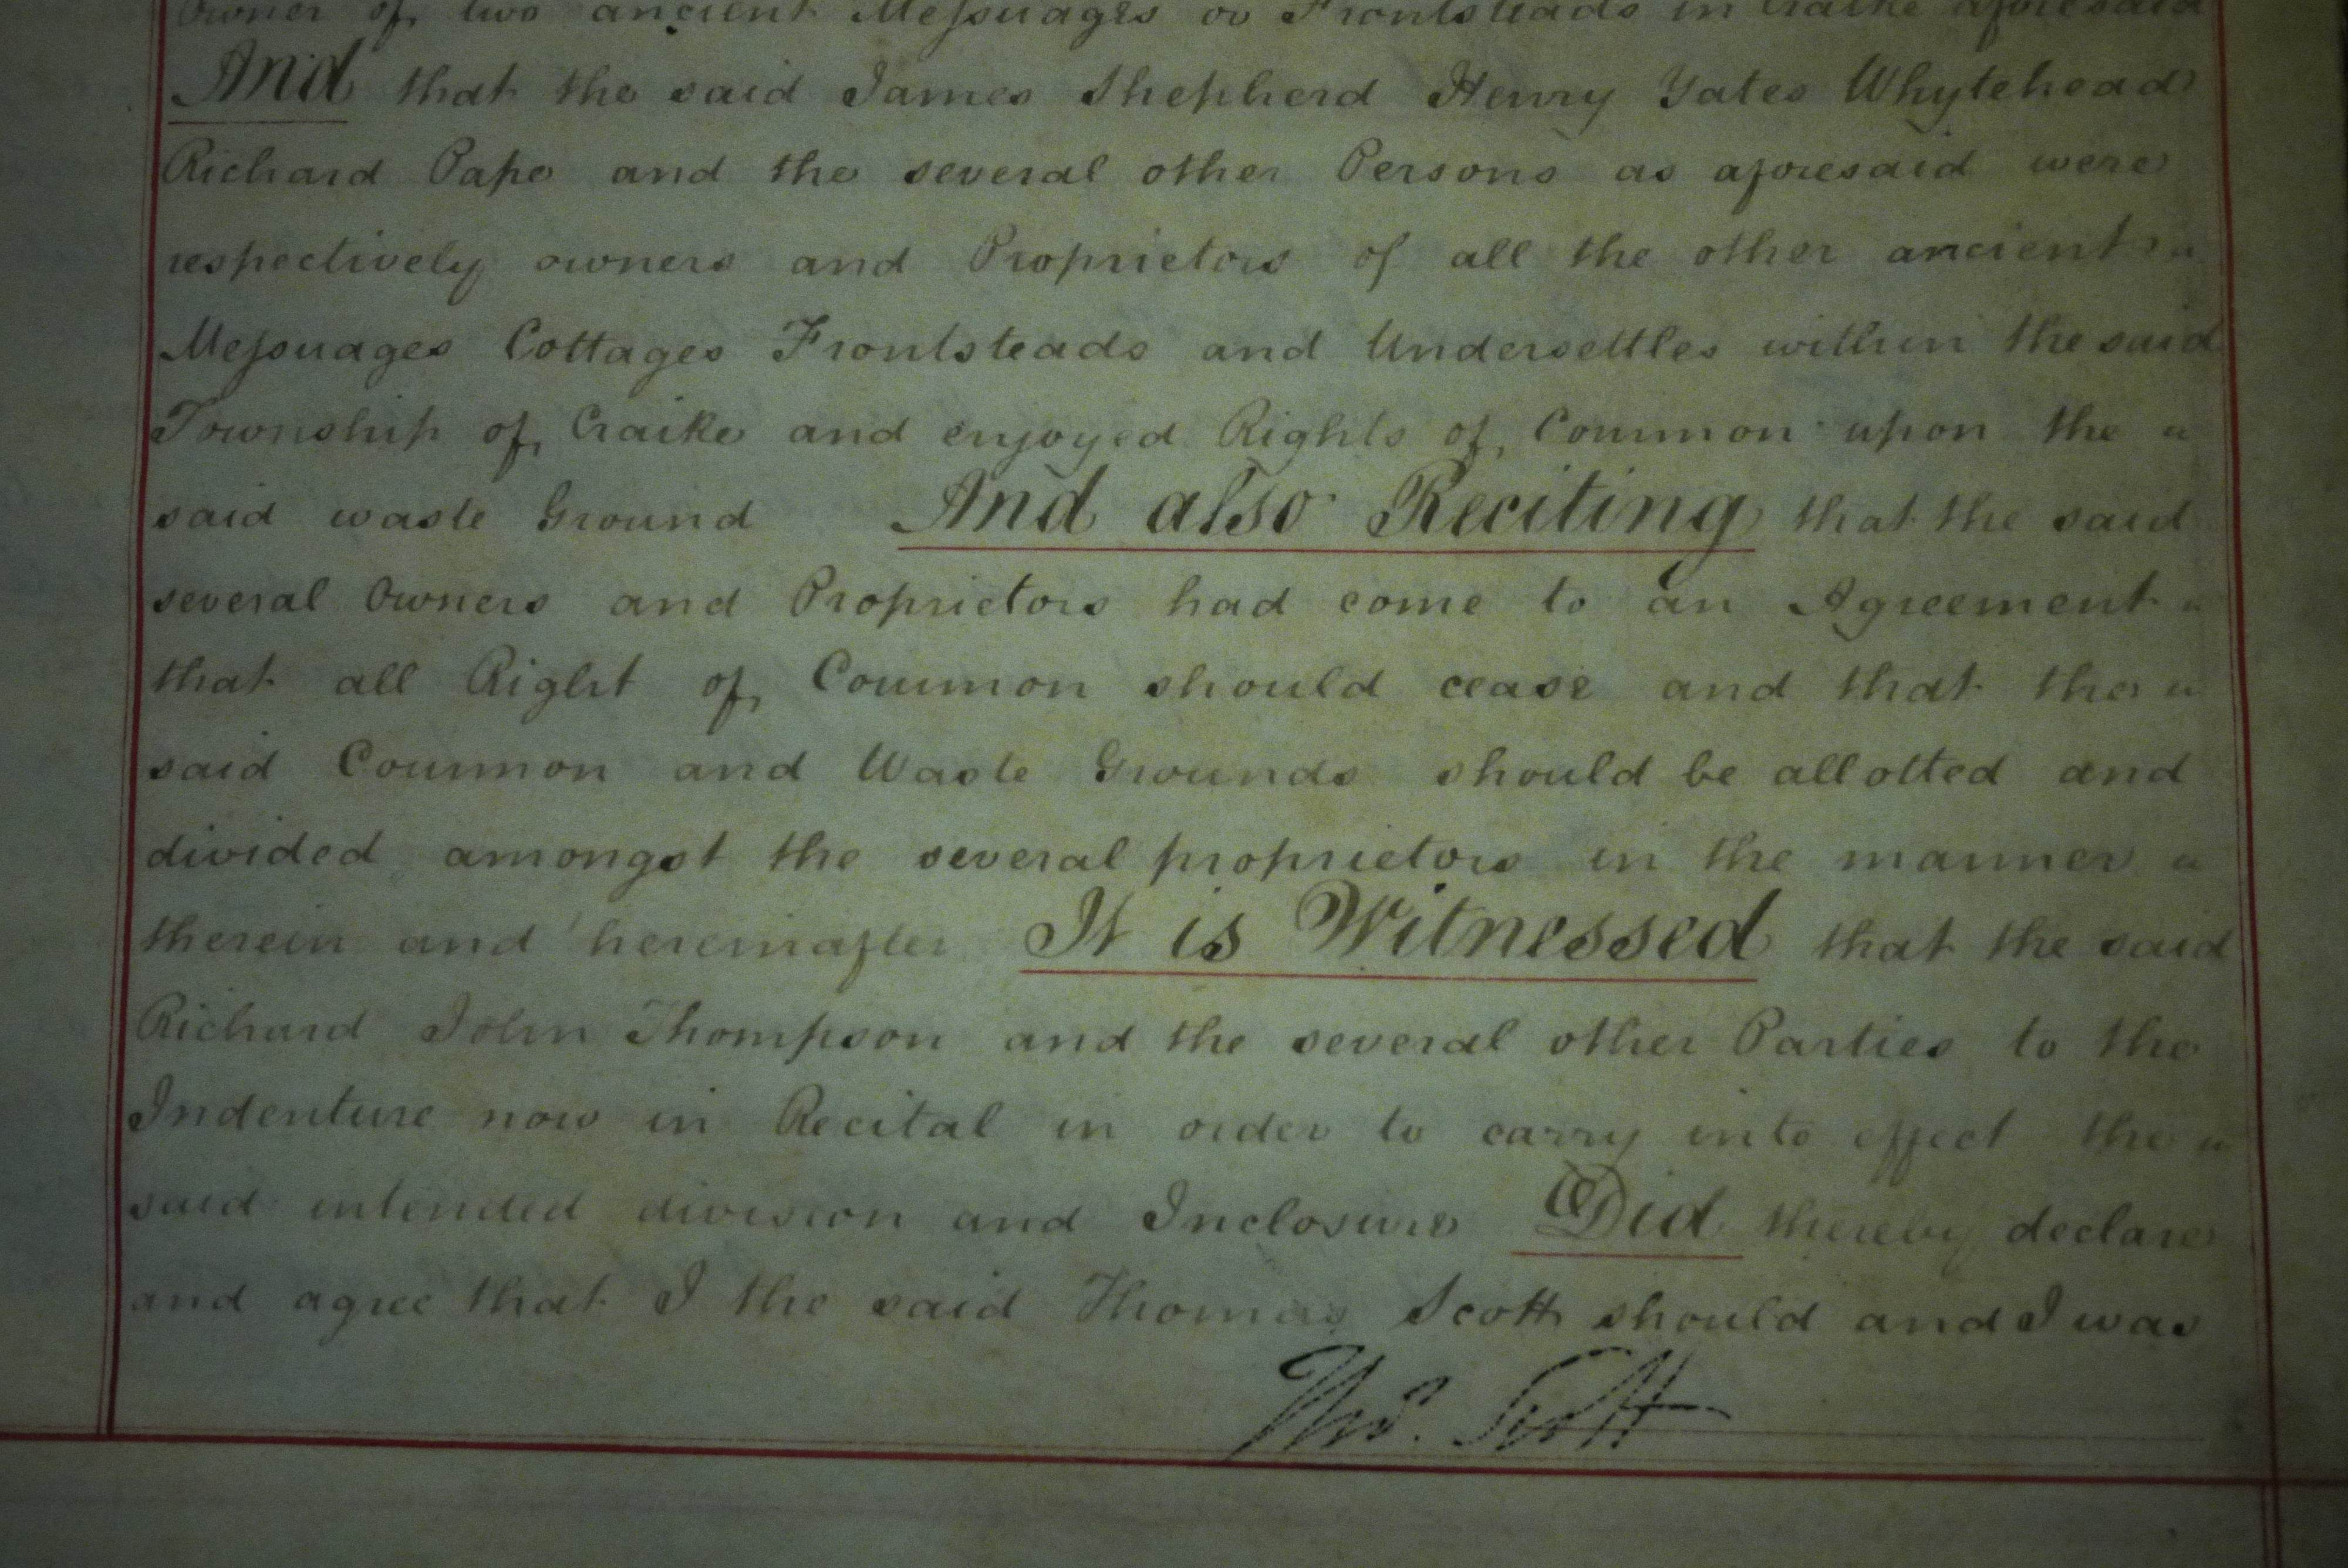 Owner of two ancient Meſsuages or Frontsteads in Craike aforesaid
And that the said James Shepherd Henry Yates Whytehead
Richard Pape and the several other Persons as aforesaid were
respectively owners and Proprietors of all the other ancient
Meſsuages Cottages Frontsteads and Undersettles within the said
Township of Craike and enjoyed Rights of Common upon the
said waste Ground And also Reciting that the said
several Owners and Proprietors had come to an Agreement
that all Right of Common should cease and that the
said Common and Waste Grounds should be allotted and
divided amongst the several proprietors in the manner
therein and hereinafter It is Witnessed that the said
Richard John Thompson and the several other Parties to the
Indenture now in Recital in order to carry into effect the
said intended division and Inclosure Did thereby declare
and agree that I the said Thomas Scott should and I was
Thos. Scott